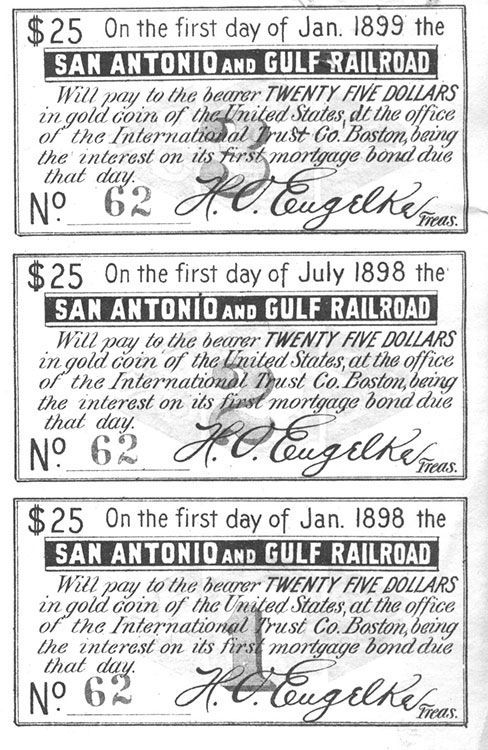 $25 On the first day of Jan. 1899 the
SAN ANTONIO AND GULF RAILROAD
Will pay to the bearer TWENTY FIVE DOLLARS
in gold coin of the United States, at the office
of the International Trust Co. Boston, being
the interest on its first mortgage bond due
that day.
33
No. 62 H. O. Engelke Treas.
$25 On the first day of July 1898 the
SAN ANTONIO AND GULF RAILROAD
Will pay to the bearer TWENTY FIVE DOLLARS
in gold coin of the United States, at the office
of the International Trust Co. Boston, being
the interest on its first mortgage bond due
that day.
2
No. 62 H. O. Engelke Treas.
$25 On the first day of Jan. 1898 the
SAN ANTONIO AND GULF RAILROAD
Will pay to the bearer TWENTY FIVE DOLLARS
in gold coin of the United States, at the office
of the International Trust Co. Boston, being
the interest on its first mortgage bond due
that day.
1
No. 62 H. O. Engelke Treas.